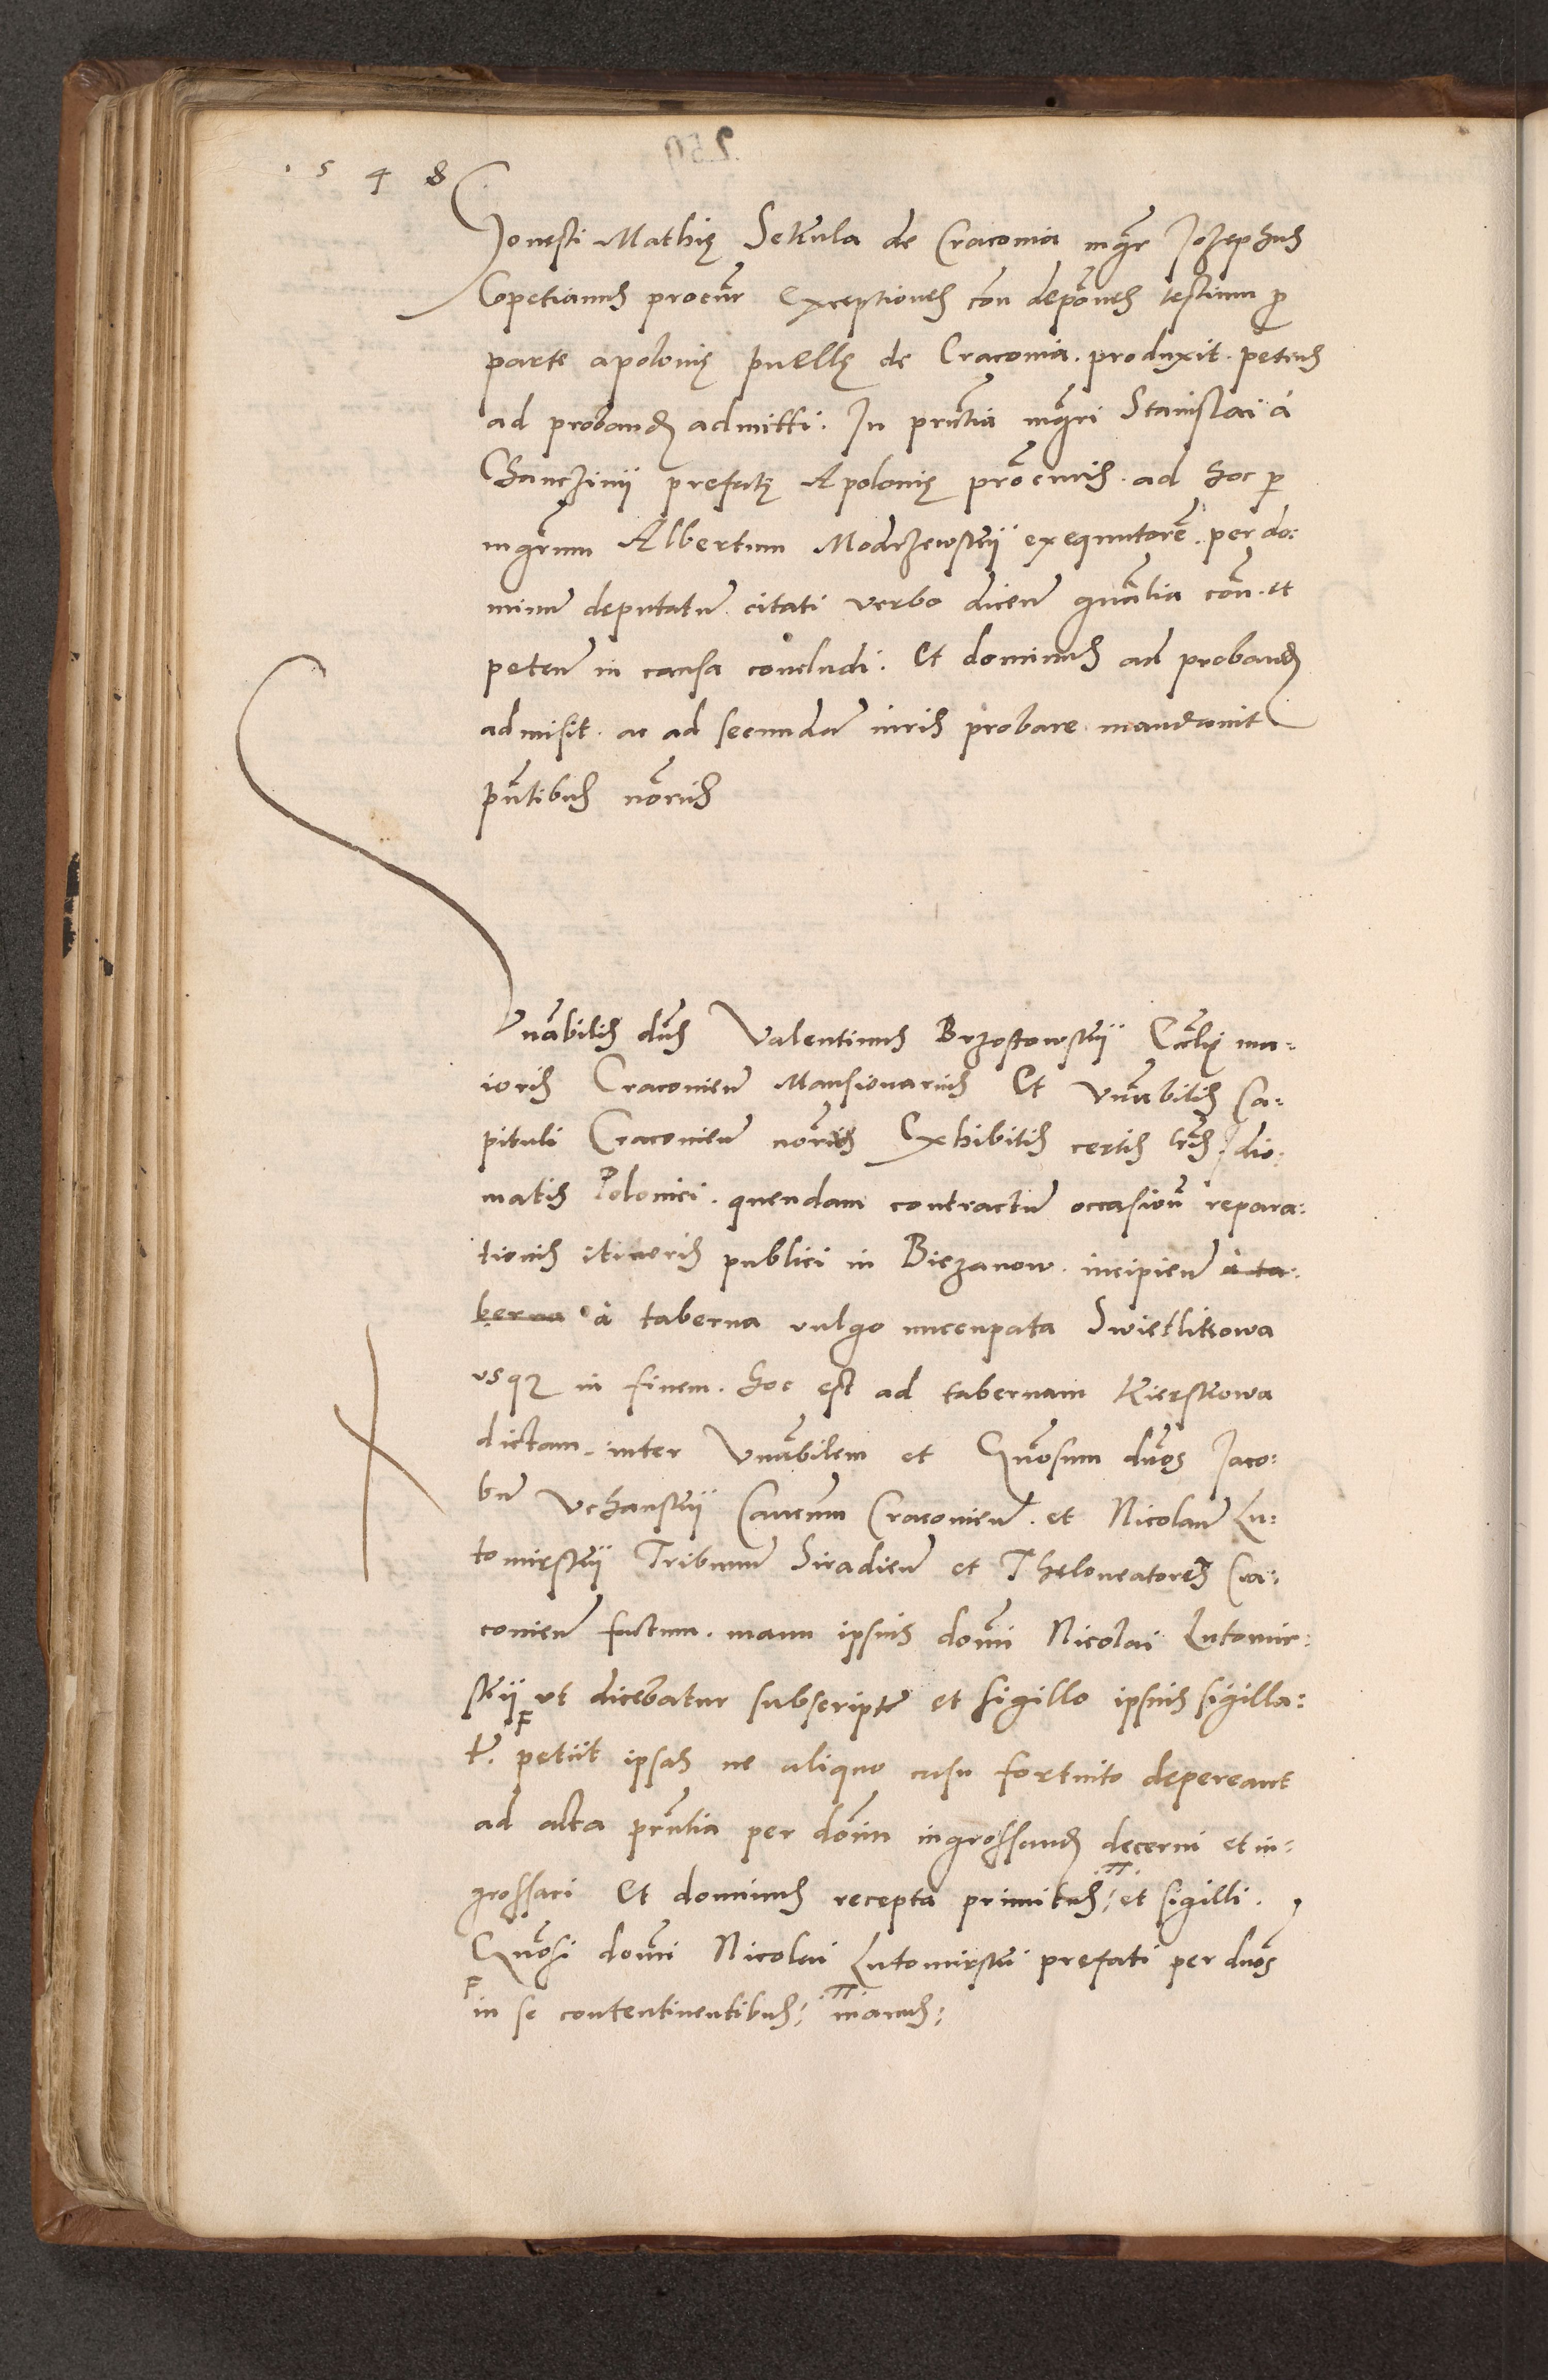 1548
Honesti Mathię Sekula de Cracovia mgr̃ Jozephus
Copetianus procur̃ exceptiones con̄ depo͠nes testium ꝑ
parte apolonię puellę de Cracovia. produxit. petens
ad proband̃ admitti. In pn̄tia mgr̃i Stanislai à
Chanczinij prefatę Apolonię pro͠curis. ad hoc ꝑ
mgr̃um Albertum Modrzewskij exequutore͠. per do:
minu͠ deputatu͠ citati verbo dicen̄ gn̄alia con̄. et
peten̄ in causa concludi. Et dominus ad proband̃
admisit. ac ad secunda͠ iuris probare mandavit
pn̄tibus no͠riis
Vn̄abilis dn̄s Valentinus Brzostowskij Eccl̃ię ma:
ioris Cracovien̄ Mansionarius Et vn̄abilis Ca:
pituli Cracovien̄ no͠rius Exhibitis certis lr̃is Idio:
matis Polonici. quendam contractu͠ occasion̄ repara:
tionis itineris publici in Biezanow. incipien̄ à ta:
berna à taberna vulgo nuncupata Swietlikowa
usqꝫ in finem. hoc est ad tabernam Kierskowa
dictam. inter Vn̄abilem et Gn̄osum dn̄os Jaco:
bu͠ Uchanskij Canc͠um Cracovien̄. et Nicolau͠ Lu:
tomirskij Tribunu͠ Siradien̄ et Theloneatores Cra:
covien̄ factum. manu ipsius dom̄i Nicolai Lutomir:
skij ut dicebatur subscript͠ et sigillo ipsius sigilla:
t͠. petiit ipsas ne aliquo casu fortuito depereant
ad acta pn̄tia per dom̄ ingrossand̃ decerni et in:
grossari Et dominus recepta primitus et sigilli.
Gn̄osi dom̄i Nicolai Lutomirskii prefati per dn̄os
in se contentinentibus: manus: